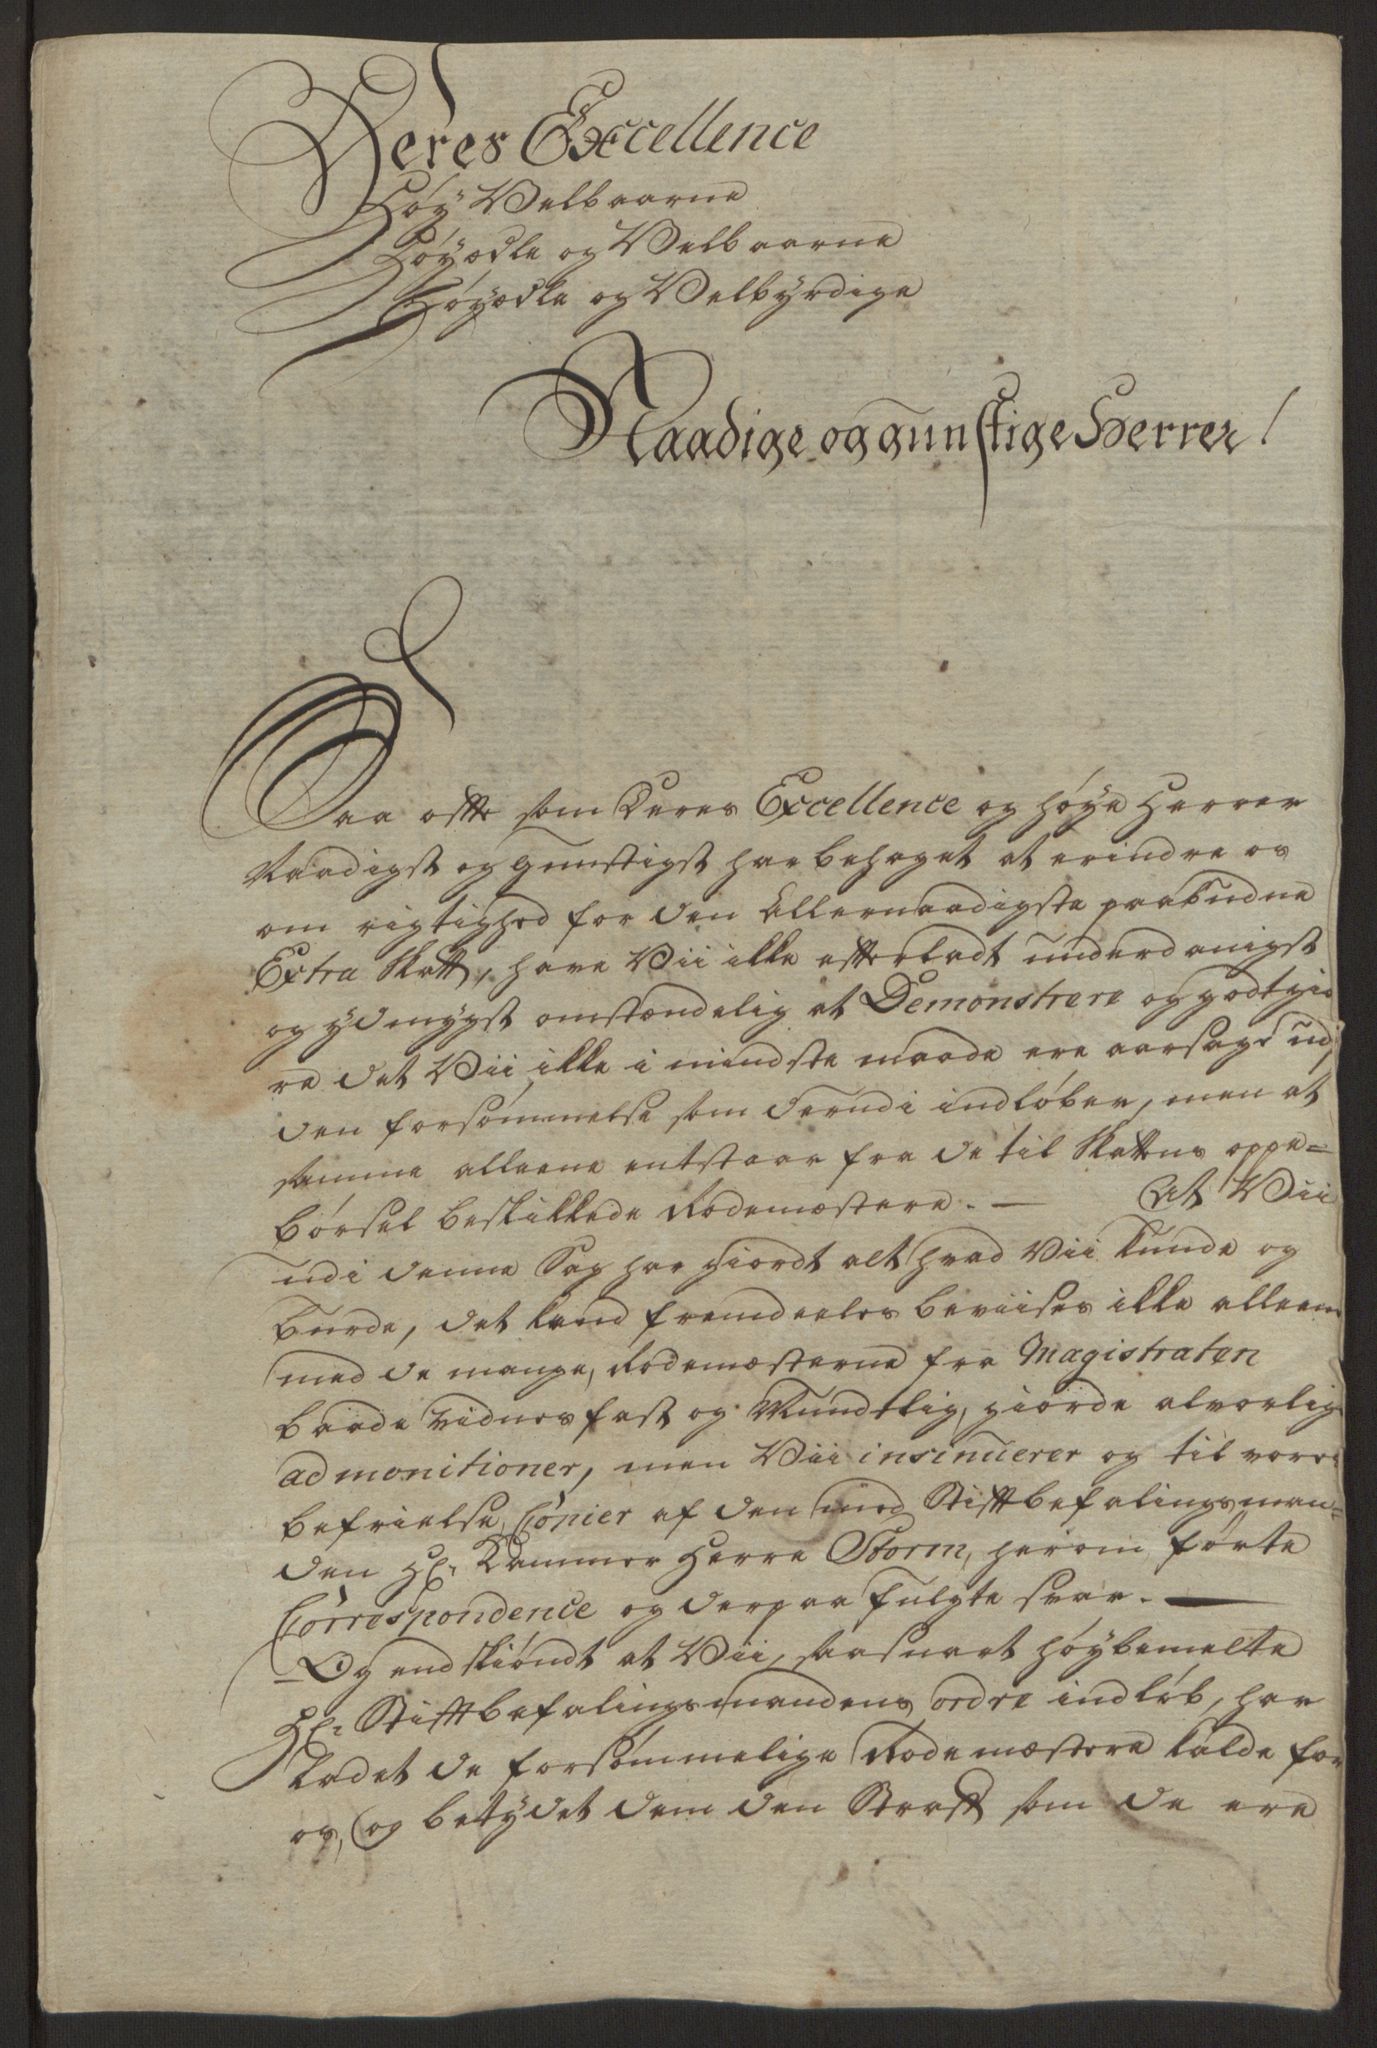 Deres Excellence
Høy Velbaarne
Høyædle og Velbaarne
Høyædle og Velbyrdige
Naadige og gunstige Herrer!
Saa ofte som Deres Excellence og høye Herrer
Naadigst og gunstigst har behaget at erindre os
om rigtighed for den Allernaadigste paabudne
Extra Skatt, have Vii ikke efterladt underdanigst
og ydmygst omstændelig at Demonstrere og godtgiø
re det Vii ikke i mindste maade ere aarsage ud,i
den forsømmelse som derudi indløber, men at
samme alleene entstaar fra de til Skattens oppe=
børsel beskikkede Rodemæstere. — At Vii
udi denne Sag har giordt alt hvad Vii kunde og
burde, det kand fremdeeles beviises ikke alleene
med de mange, Rodemæsterne fra Magistraten
baade Vidnesfast og Mundtlig, giorde alvorlige
admonitioner, men Vii insinuerer og til vores
befrielse, Copier af den med Stiftbefalingsman=
den Hr. Kammer Herre Storm, herom førte
Correspondence og derpaa fulgte svar. —
Og endskiøndt at Vii, saasnart høybemelte
Hr. Stiftbefalingsmandens ordre indløb, har
ladet de forsømmelige Rodemæstere kalde for
os, og betydet dem den Straff som de ere